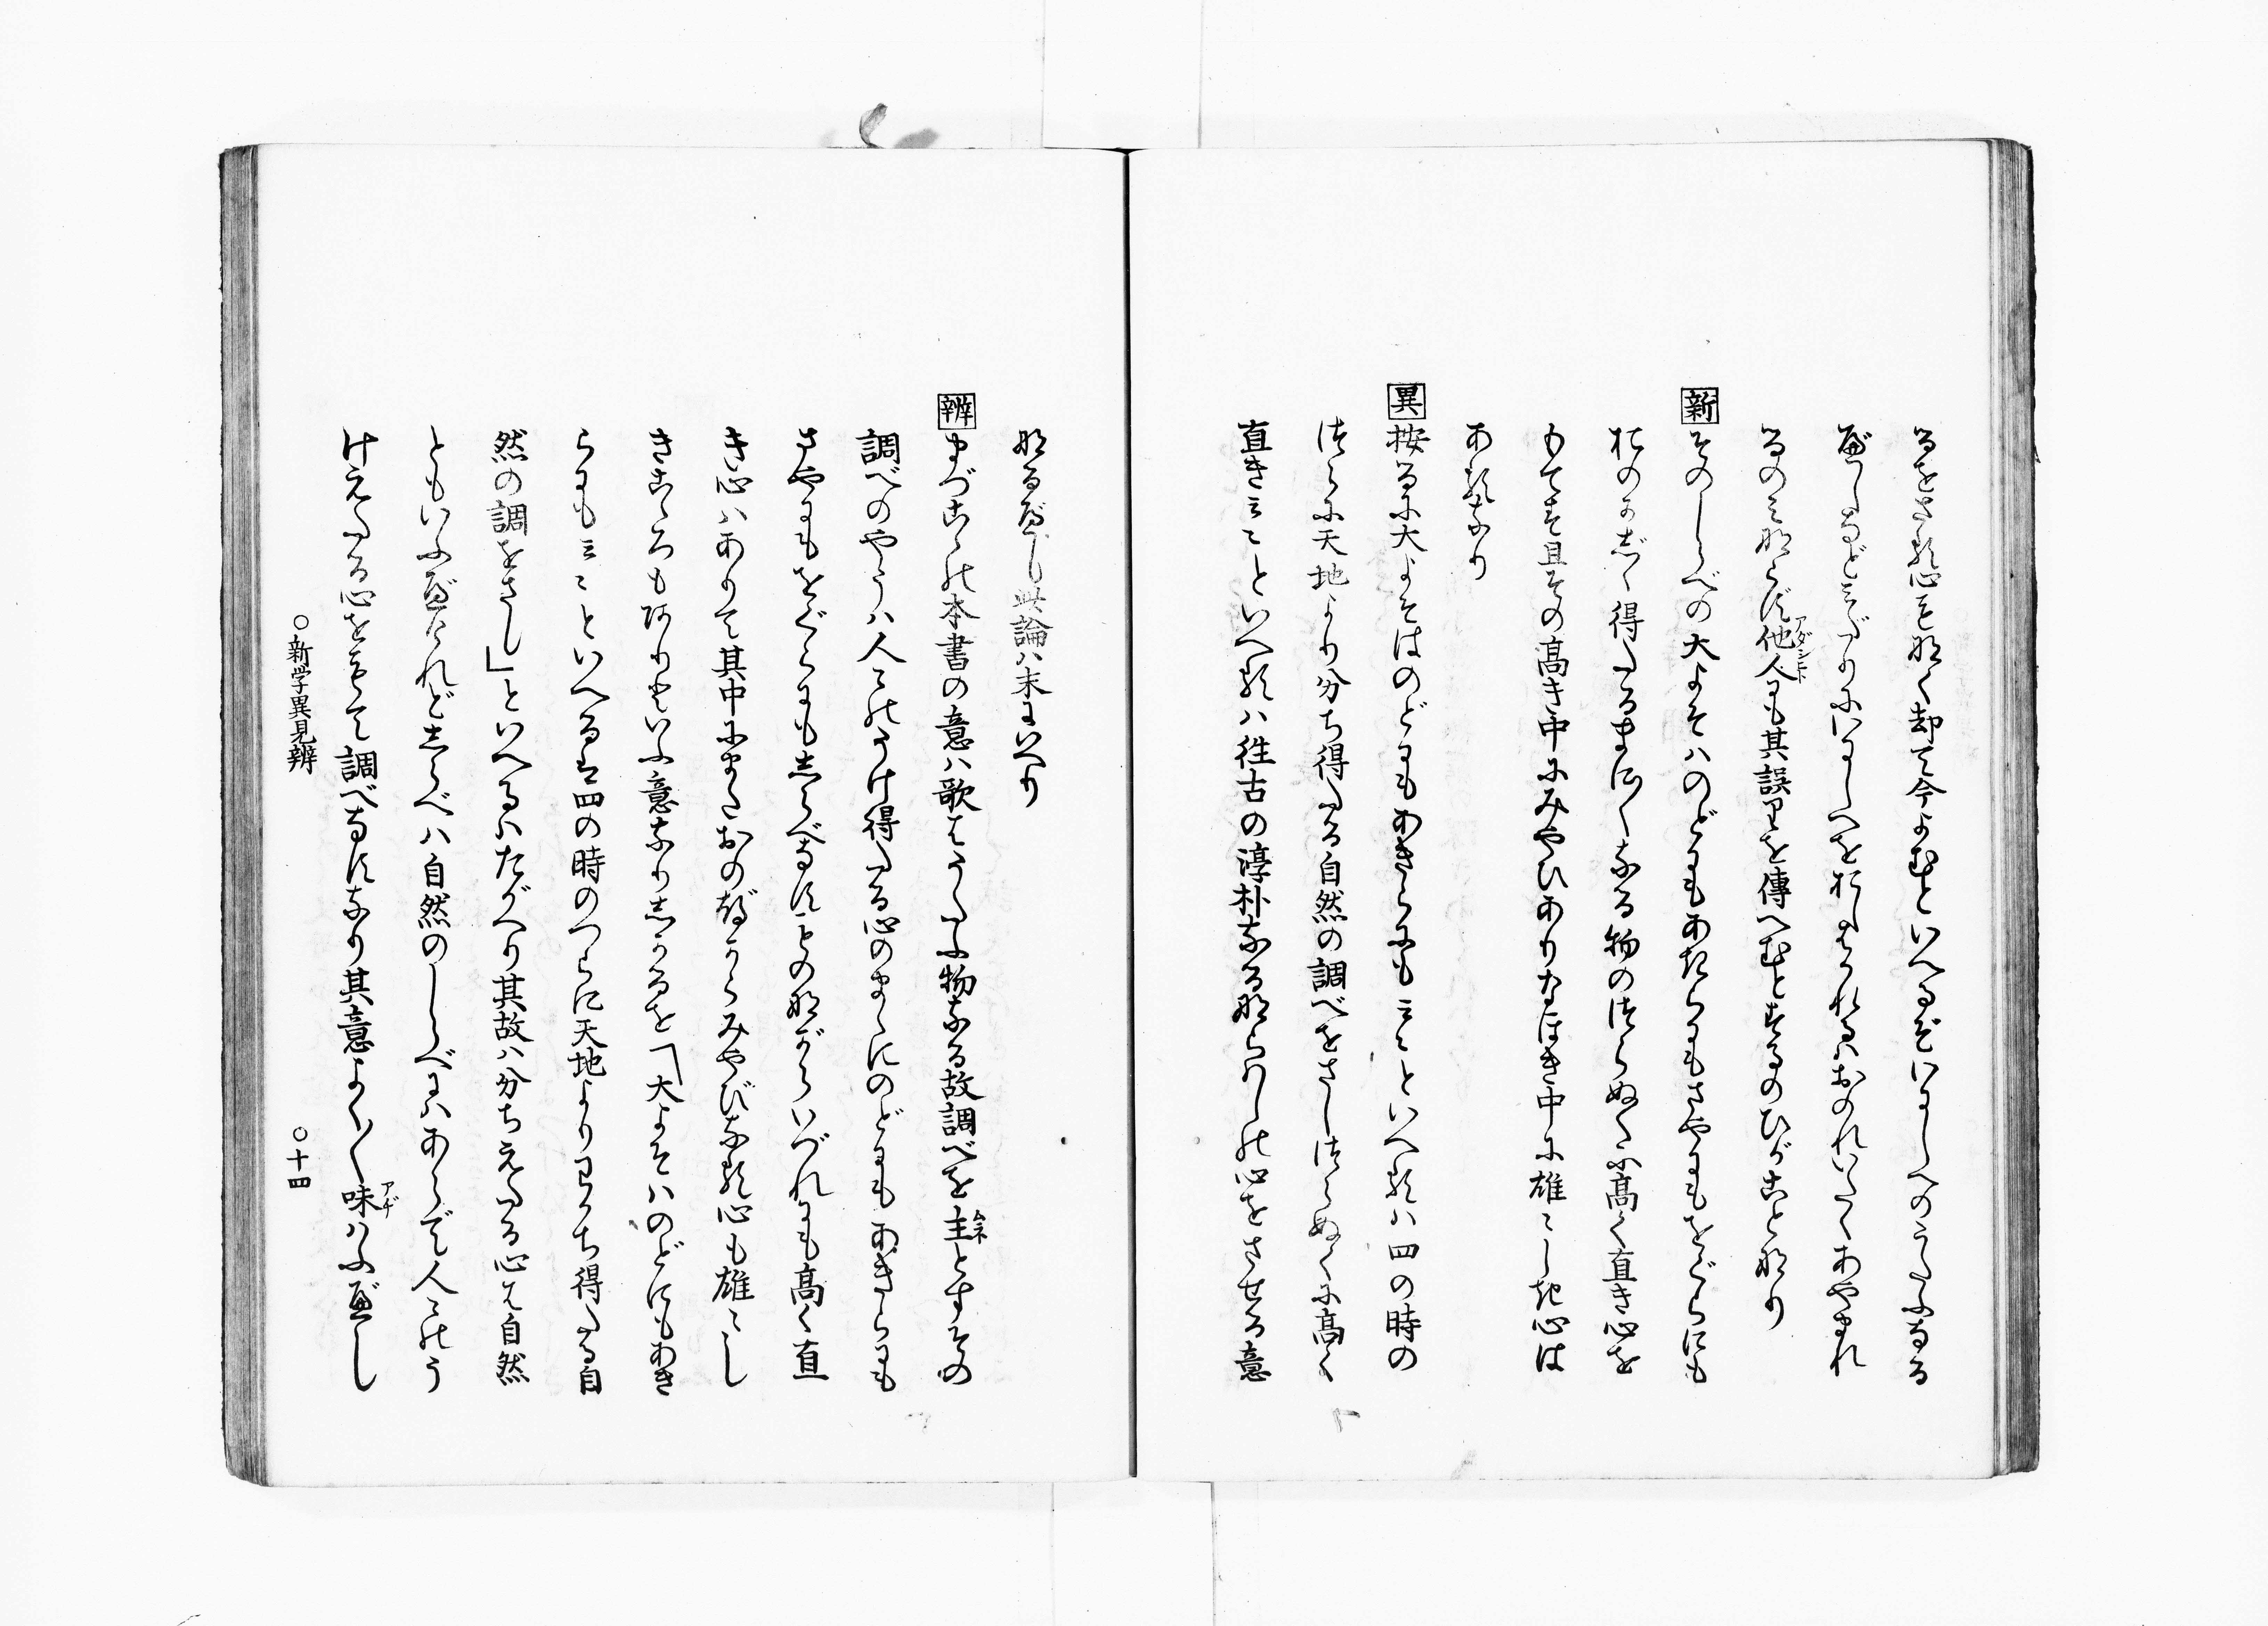 るをさる心もなく却て今よむといへるぞいにしへのうたふなる
べしなどみだりにいにしへをおしはかれるはおのれいたくあやまれ
るのみならず他人にも其誤りを傳へむとするのひがことなり
新 そのしらべの大よそはのどにもあきらにもさやにもをぐらにも
おのがじゝ得たるまに〳〵なる物のつらぬくに高く直き心を
もてす且その高き中にみやびありなほき中に雄々しき心は
あるなり
異 按るに大よそはのどにもあきらにも云々といへるは四の時の
つらに天地より分ち得たる自然の調べをさしつらぬくに高く
直き云々といへるは往古の淳朴なるならはしの心をさせる意
なるべし此論は末にいへり
辨 まづこゝの本書の意は歌はうたふ物なる故調べを主とすその
調べのやうは人々のうけ得たる心のまゝにのどにもあきらにも
さやにもをぐらにもしらべなすものながらいづれにも高く直
き心はありて其中にまたおのづからみやびなる心も雄々し
きこゝろも有りといふ意なりしかるを「大よそはのどにもあき
らにも云々といへるは四の時のつらに天地よりわかち得たる自
然の調をさし」といへるはたがへり其故は分ちえたる心は自然
ともいふべけれどしらべは自然のしらべにはあらで人々のう
けえたる心をもて調べなすなり其意よく〳〵味はふべし
○新学異見辨
○十四
アダシヒト
ムネ
アヂ